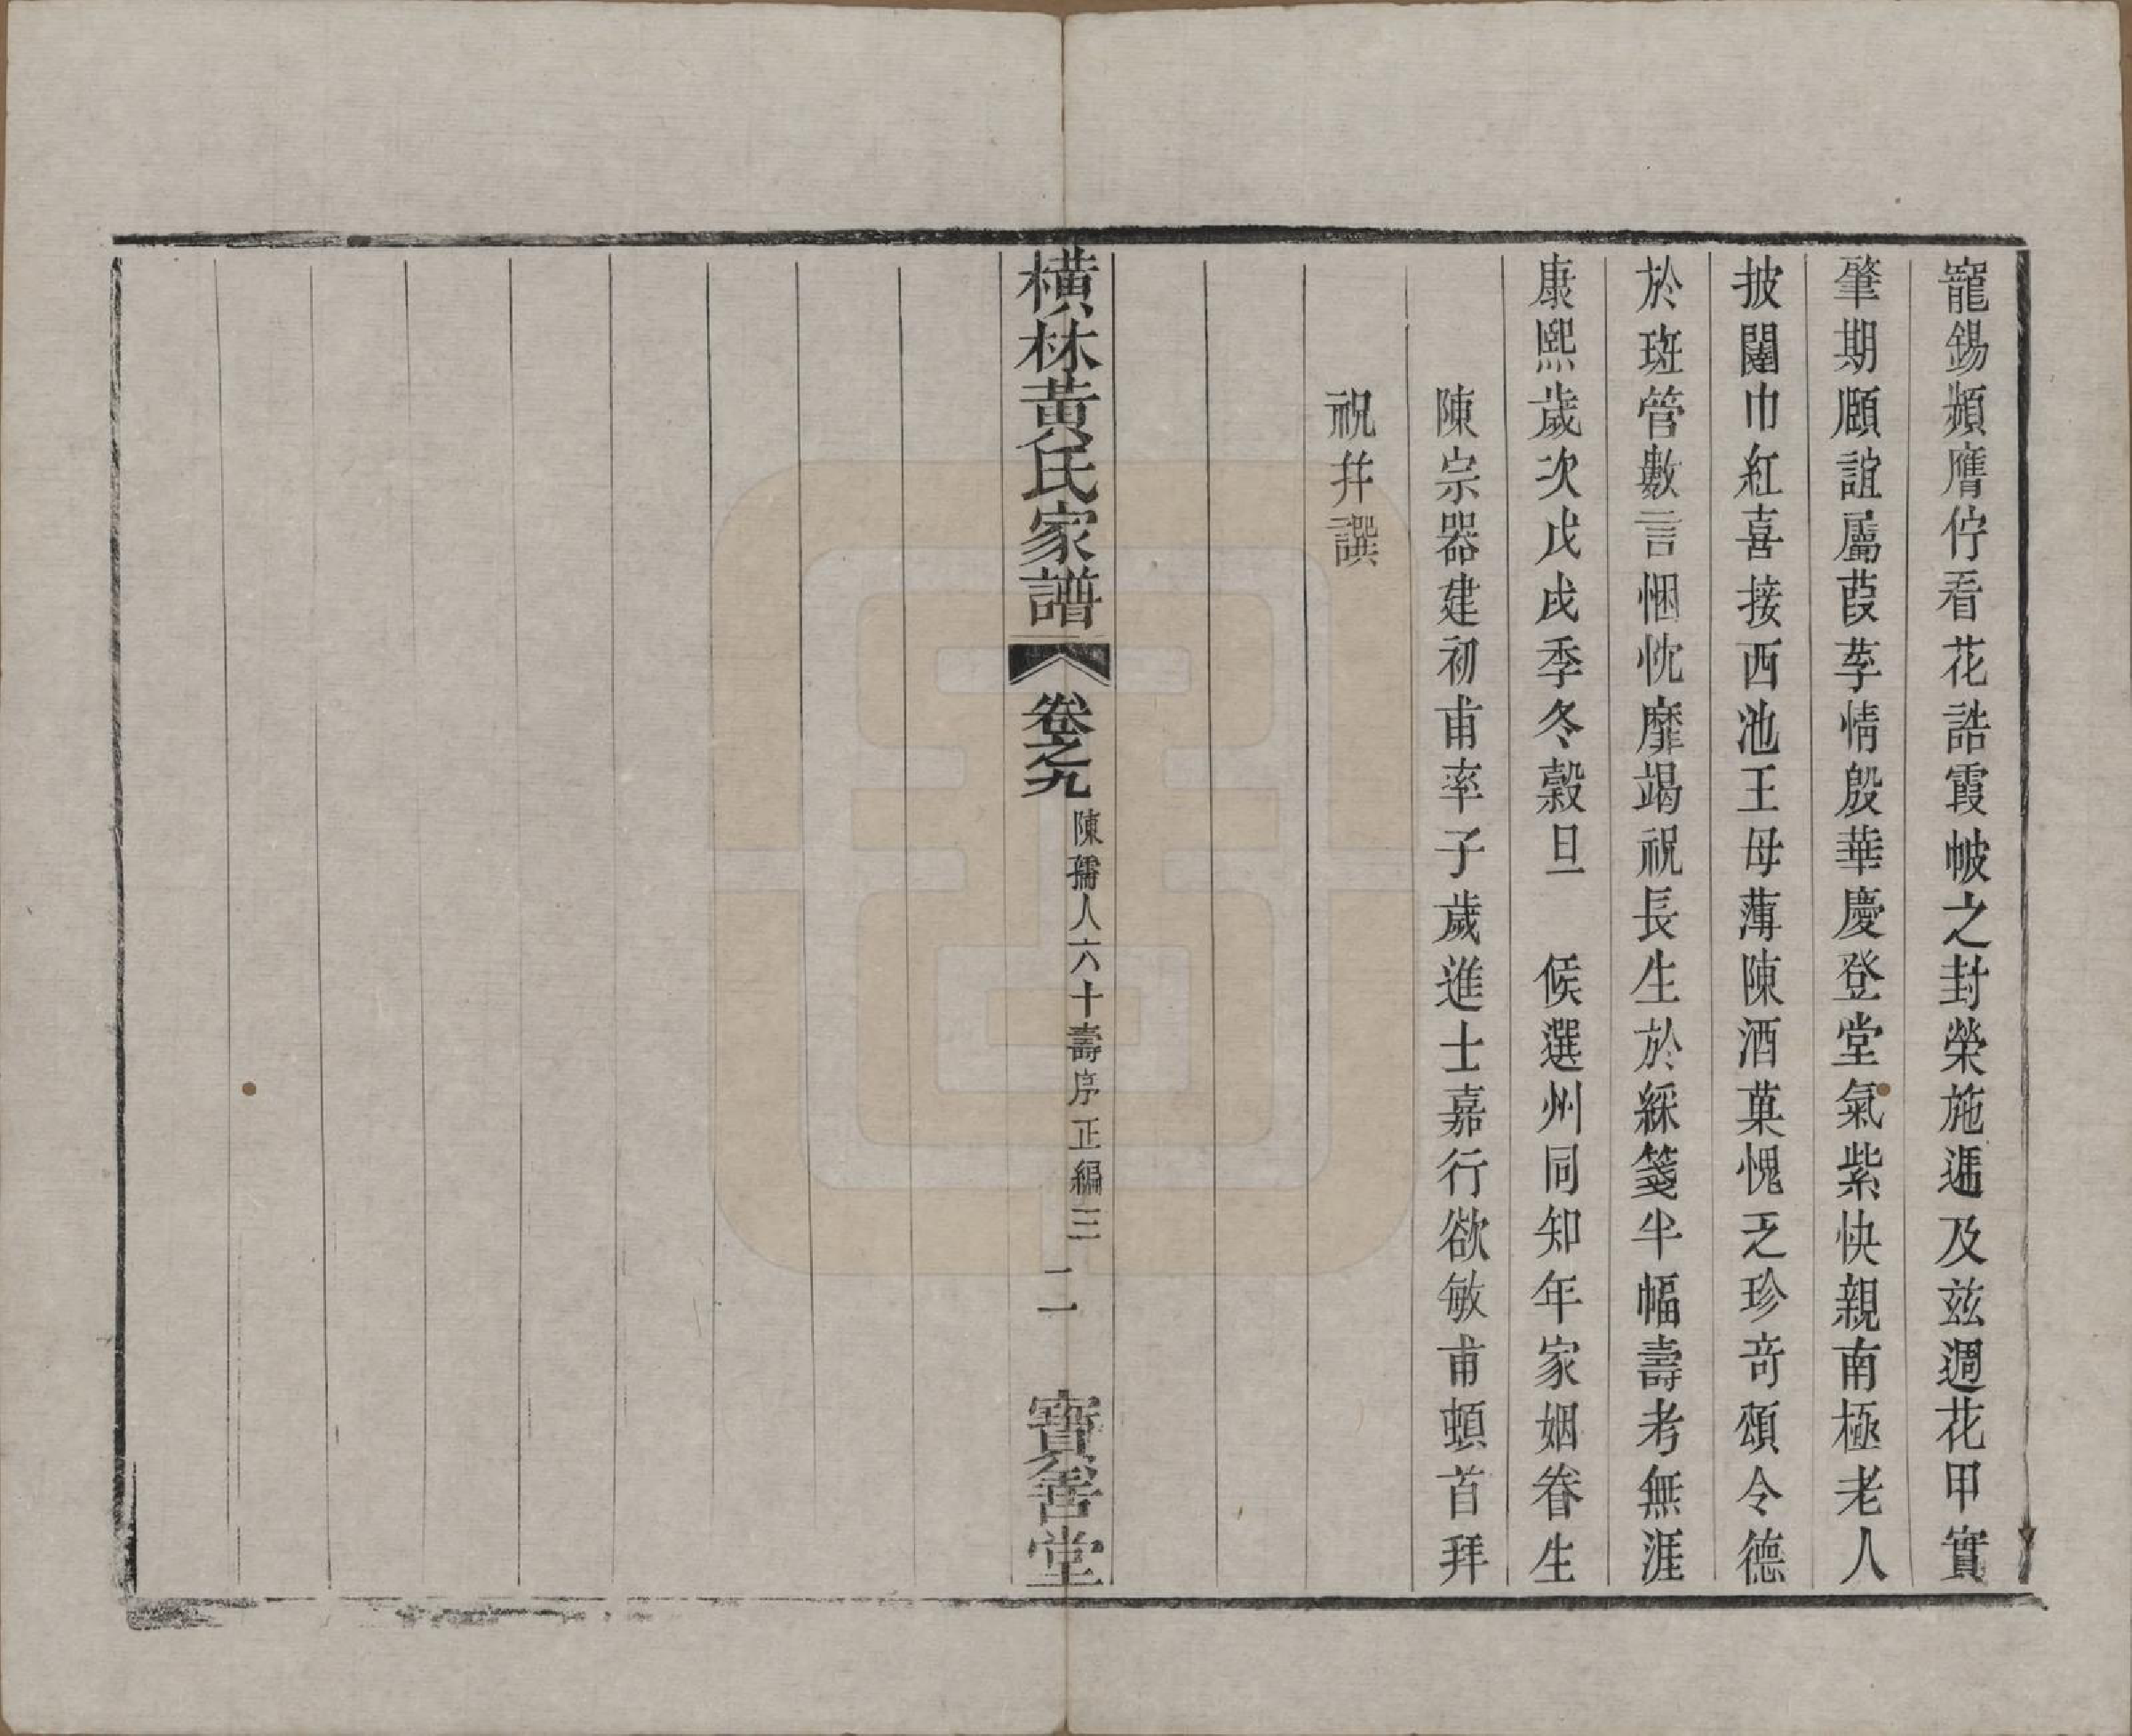 寵錫頻膺佇看花誥霞帔之封榮施遥及茲週花甲實
肇期頤誼屬葭莩情殷華慶登堂氣紫快親南極老人
披闥巾紅喜接西池王母薄陳酒菓愧乏珍奇頌令德
於斑管數言悃忱靡竭祝長生於綵箋半幅壽考無涯
康熙歲次戊戌季冬榖旦　候選州同知年家姻眷生
陳宗器建初甫率子歲進士嘉行欲敏甫頓首拜
祝并譔
橫林黃氏家譜 卷之九 陳孺人六十壽序正編三 二 寶善堂